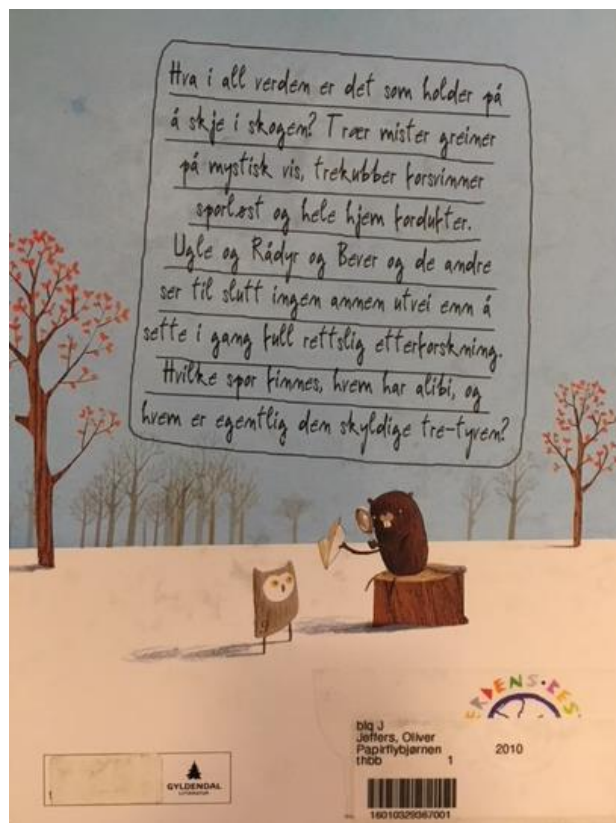 Hva i all verden er det som holder på
å skje i skogen? Trær mister greiner
på mystisk vis, trekubber forsvinner
sporløst og hele hjem fordufter.
Ugle og Rådyr og Bever og de andre
ser til slutt ingen annen utvei enn å
sette i gang full rettslig etterforskning.
Hvilke spor finnes, hvem har alibi, og
hvem er egentlig den skyldige tre-tyven?
GYLDENDAL
LITTERATUR
blq J
Jeffers, Oliver
Papirflybjørnen 2010
thbb 1
16010329367001